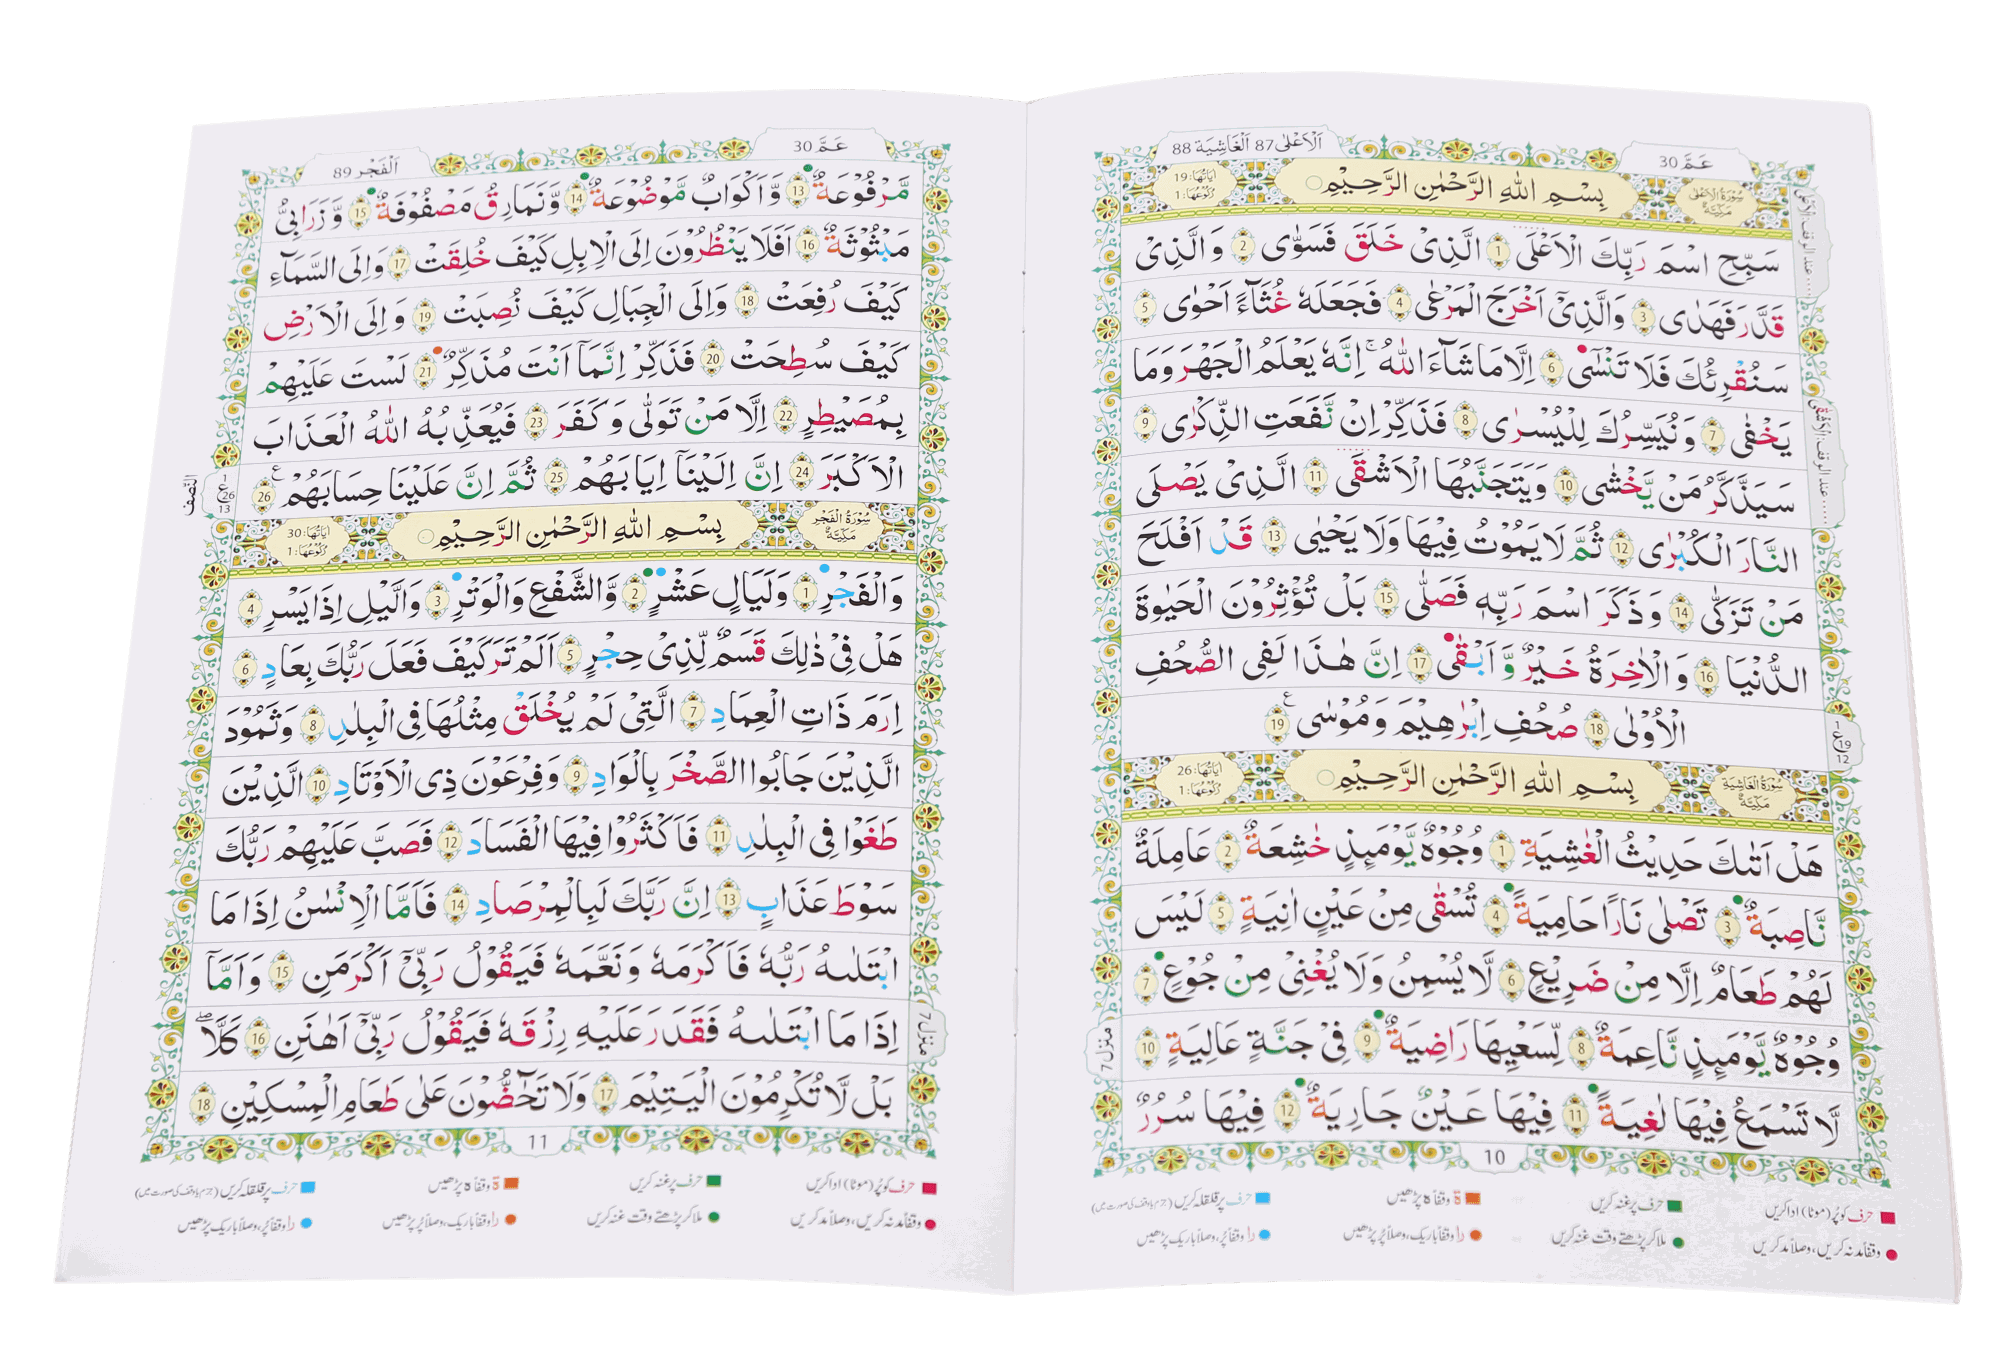 عَمَّ 30
اَلْاَعْلٰى 87 اَلْغَاشِيَة 88
سُوْرَةُ الْاَعْلٰى مَكِّيَّةٌ
بِسْمِ اللهِ الرَّحْمٰنِ الرَّحِيْمِ
اٰيَاتُهَا: 19
رُكُوْعُهَا: 1
سَبِّحِ اسْمَ رَبِّكَ الْاَعْلَى 1 الَّذِیْ خَلَقَ فَسَوّٰی 2 وَ الَّذِیْ
قَدَّرَ فَهَدٰی 3 وَالَّذِیْۤ اَخْرَجَ الْمَرْعٰی 4 فَجَعَلَهٗ غُثَآءً اَحْوٰی 5
سَنُقْرِئُكَ فَلَا تَنْسٰۤی 6 اِلَّا مَا شَآءَ اللهُ ؕ اِنَّهٗ یَعْلَمُ الْجَهْرَ وَمَا
یَخْفٰی 7 وَ نُیَسِّرُكَ لِلْیُسْرٰی 8 فَذَكِّرْ اِنْ نَّفَعَتِ الذِّكْرٰی 9
سَیَذَّكَّرُ مَنْ یَّخْشٰی 10 وَیَتَجَنَّبُهَا الْاَشْقَی 11 الَّذِیْ یَصْلَی
النَّارَ الْكُبْرٰی 12 ثُمَّ لَا یَمُوْتُ فِیْهَا وَلَا یَحْیٰی 13 قَدْ اَفْلَحَ
مَنْ تَزَكّٰی 14 وَ ذَكَرَ اسْمَ رَبِّهٖ فَصَلّٰی 15 بَلْ تُؤْثِرُوْنَ الْحَیٰوةَ
الدُّنْیَا 16 وَ الْاٰخِرَةُ خَیْرٌ وَّ اَبْقٰی 17 اِنَّ هٰذَا لَفِی الصُّحُفِ
الْاُوْلٰی 18 صُحُفِ اِبْرٰهِیْمَ وَ مُوْسٰی 19
سُوْرَةُ الْغَاشِيَةِ مَكِّيَّةٌ
بِسْمِ اللهِ الرَّحْمٰنِ الرَّحِيْمِ
اٰيَاتُهَا: 26
رُكُوْعُهَا: 1
هَلْ اَتٰىكَ حَدِیْثُ الْغٰشِیَةِ 1 وُجُوْهٌ یَّوْمَىِٕذٍ خٰشِعَةٌ 2 عَامِلَةٌ
نَّاصِبَةٌ 3 تَصْلٰی نَارًا حَامِیَةً 4 تُسْقٰی مِنْ عَیْنٍ اٰنِیَةٍ 5 لَیْسَ
لَهُمْ طَعَامٌ اِلَّا مِنْ ضَرِیْعٍ 6 لَّا یُسْمِنُ وَلَا یُغْنِیْ مِنْ جُوْعٍ 7
وُجُوْهٌ یَّوْمَىِٕذٍ نَّاعِمَةٌ 8 لِّسَعْیِهَا رَاضِیَةٌ 9 فِیْ جَنَّةٍ عَالِیَةٍ 10
لَّا تَسْمَعُ فِیْهَا لٰغِیَةً 11 فِیْهَا عَیْنٌ جَارِیَةٌ 12 فِیْهَا سُرُرٌ
عند الوقف الاعلٰى
عند الوقف الاشقٰى
1
ع
19
12
منزل 7
10
حرف کو پُر (موٹا) ادا کریں
حرف پر غنہ کریں
ۃ وقفاً ہ پڑھیں
حرف پر قلقلہ کریں (جزم یا وقف کی صورت میں)
وقفاً مد نہ کریں، وصلاً مد کریں
ملا کر پڑھتے وقت غنہ کریں
را وقفاً باریک، وصلاً پُر پڑھیں
را وقفاً پُر، وصلاً باریک پڑھیں
عَمَّ 30
اَلْفَجْر 89
مَّرْفُوْعَةٌ 13 وَّ اَكْوَابٌ مَّوْضُوْعَةٌ 14 وَّ نَمَارِقُ مَصْفُوْفَةٌ 15 وَّ زَرَابِیُّ
مَبْثُوْثَةٌ 16 اَفَلَا یَنْظُرُوْنَ اِلَی الْاِبِلِ كَیْفَ خُلِقَتْ 17 وَ اِلَی السَّمَآءِ
كَیْفَ رُفِعَتْ 18 وَاِلَی الْجِبَالِ كَیْفَ نُصِبَتْ 19 وَ اِلَی الْاَرْضِ
كَیْفَ سُطِحَتْ 20 فَذَكِّرْ اِنَّمَاۤ اَنْتَ مُذَكِّرٌ 21 لَسْتَ عَلَیْهِمْ
بِمُصَۜیْطِرٍ 22 اِلَّا مَنْ تَوَلّٰی وَ كَفَرَ 23 فَیُعَذِّبُهُ اللهُ الْعَذَابَ
الْاَكْبَرَ 24 اِنَّ اِلَیْنَاۤ اِیَابَهُمْ 25 ثُمَّ اِنَّ عَلَیْنَا حِسَابَهُمْ 26
سُوْرَةُ الْفَجْرِ مَكِّيَّةٌ
بِسْمِ اللهِ الرَّحْمٰنِ الرَّحِيْمِ
اٰيَاتُهَا: 30
رُكُوْعُهَا: 1
وَالْفَجْرِ 1 وَ لَیَالٍ عَشْرٍ 2 وَّ الشَّفْعِ وَ الْوَتْرِ 3 وَ الَّیْلِ اِذَا یَسْرِ 4
هَلْ فِیْ ذٰلِكَ قَسَمٌ لِّذِیْ حِجْرٍ 5 اَلَمْ تَرَ كَیْفَ فَعَلَ رَبُّكَ بِعَادٍ 6
اِرَمَ ذَاتِ الْعِمَادِ 7 الَّتِیْ لَمْ یُخْلَقْ مِثْلُهَا فِی الْبِلَادِ 8 وَ ثَمُوْدَ
الَّذِیْنَ جَابُوا الصَّخْرَ بِالْوَادِ 9 وَ فِرْعَوْنَ ذِی الْاَوْتَادِ 10 الَّذِیْنَ
طَغَوْا فِی الْبِلَادِ 11 فَاَكْثَرُوْا فِیْهَا الْفَسَادَ 12 فَصَبَّ عَلَیْهِمْ رَبُّكَ
سَوْطَ عَذَابٍ 13 اِنَّ رَبَّكَ لَبِالْمِرْصَادِ 14 فَاَمَّا الْاِنْسٰنُ اِذَا مَا
ابْتَلٰىهُ رَبُّهٗ فَاَكْرَمَهٗ وَ نَعَّمَهٗ فَیَقُوْلُ رَبِّیْۤ اَكْرَمَنِ 15 وَ اَمَّاۤ
اِذَا مَا ابْتَلٰىهُ فَقَدَرَ عَلَیْهِ رِزْقَهٗ فَیَقُوْلُ رَبِّیْۤ اَهٰنَنِ 16 كَلَّا
بَلْ لَّا تُكْرِمُوْنَ الْیَتِیْمَ 17 وَلَا تَحٰٓضُّوْنَ عَلٰی طَعَامِ الْمِسْكِیْنِ 18
النصف
1
ع
26
13
منزل 7
11
حرف کو پُر (موٹا) ادا کریں
حرف پر غنہ کریں
ۃ وقفاً ہ پڑھیں
حرف پر قلقلہ کریں (جزم یا وقف کی صورت میں)
وقفاً مد نہ کریں، وصلاً مد کریں
ملا کر پڑھتے وقت غنہ کریں
را وقفاً باریک، وصلاً پُر پڑھیں
را وقفاً پُر، وصلاً باریک پڑھیں